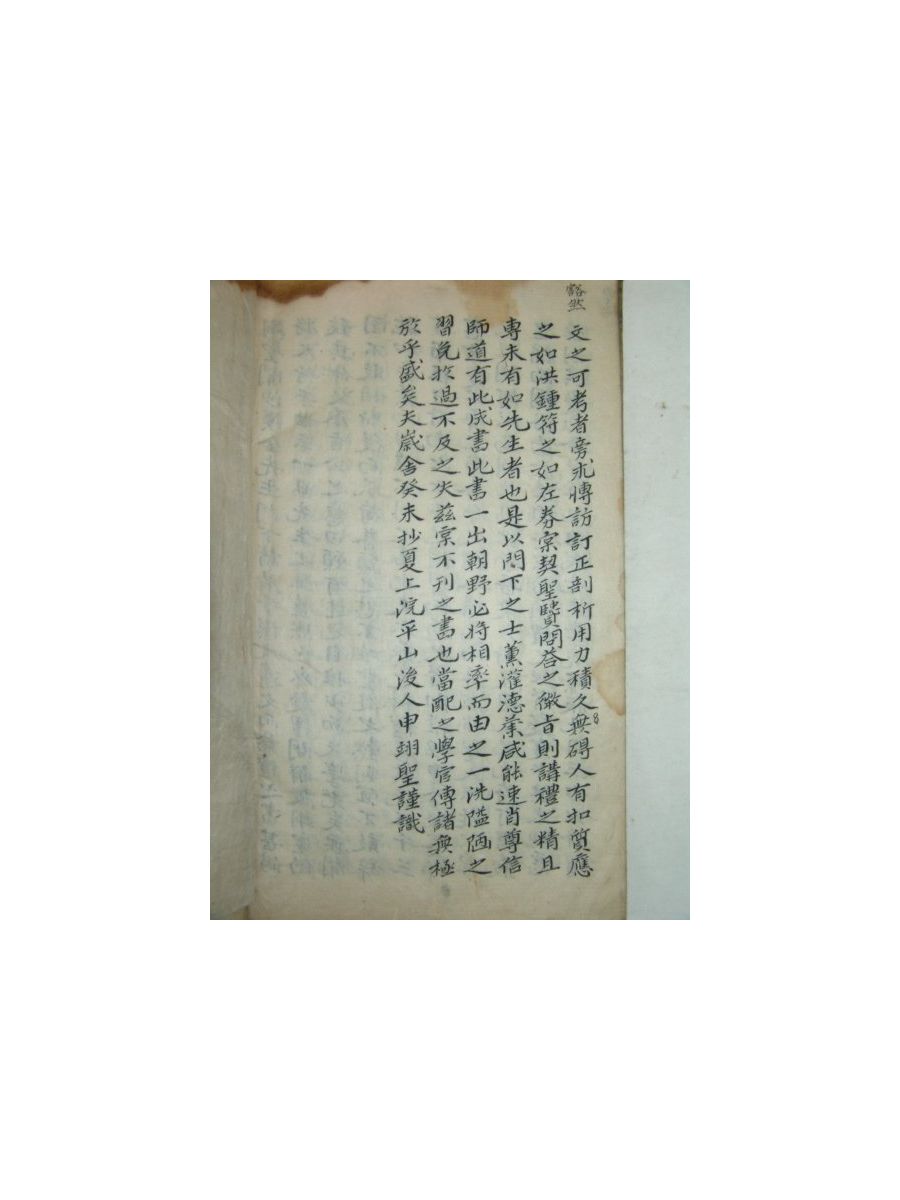 豁然
文之可考者旁求博訪訂正剖析用力積久無碍人有扣質應
之如洪鍾符之如左券宗契聖賢問答之微旨則講禮之精且
專未有如先生者也是以門下之士薰灌德業咸能速肖尊信
師道有此成書此書一出朝野必將相率而由之一洗隘陋之
習免於過不及之失玆宗不刊之書也當配之學官傳諸無極
於乎盛矣夫歲舍癸未抄夏上浣平山後人申翊聖謹識